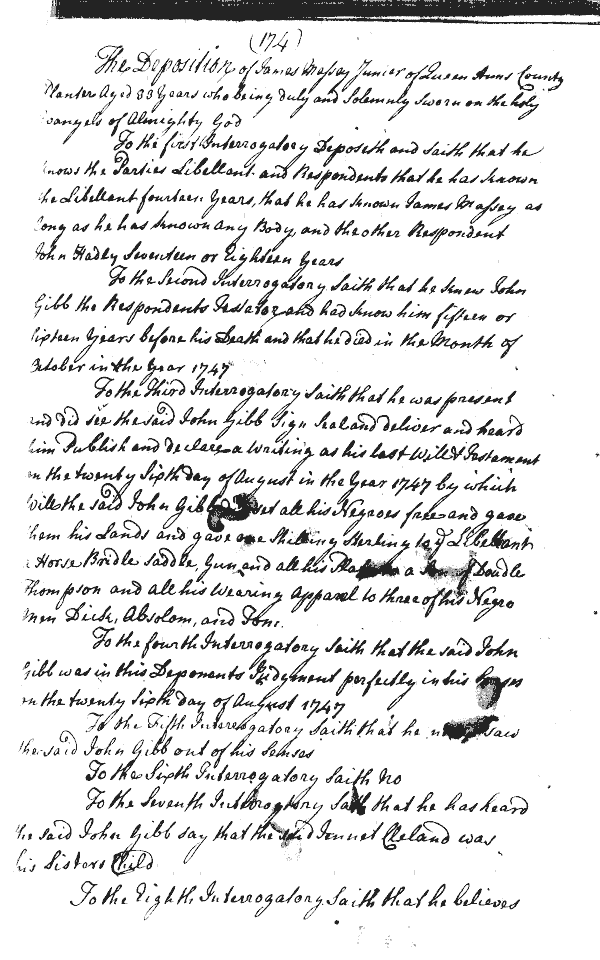 (174)
The Deposition of James Massey Junier of Queen Anns County
Planter Aged 33 Years who being duly and Solemnly Sworn on the holy
vangels of Almighty God
To the first Interrogatory Deposeth and saith that he
knows the Parties Libellant and Respondents that he has known
the Libellant fourteen Years, that he has known James Massey as
long as he has known any Body, and the other Respondent
John Hadley Seventeen or Eighteen Years
To the Second Interrogatory Saith that he knew John
Gibb the Respondents Testator and had know him fifteen or
Sixteen Years before his Death and that he died in the Month of
October in the Year 1747
To the Third Interrogatory Saith that he was present
and did see the said John Gibb Sign Seal and deliver and heard
him Publish and declare a Writing as his last Will & Testament
on the twenty Sixth day of August in the Year 1747 by which
Will the said John Gibb set all his Negroes free and gave
them his Lands and gave one Shilling Sterling to ye Libellant
a Horse Bridle saddle, Gun, and all his a of Doudle
Thompson and all his Wearing Apparel to three of his Negro
men Dick, Absolom, and Tom.
To the fourth Interrogatory Saith that the said John
Gibb was in this Deponents Judgment perfectly in his Senses
on the twenty Sixth day of August 1747
To the Fifth Interrogatory saith that he never saw
the said John Gibb out of his Senses
To the Sixth Interrogatory Saith No
To the Seventh Interrogatory Saith that he has heard
the said John Gibb say that the said Jennet Cleland was
his Sisters Child
To the Eighth Interrogatory Saith that he believes